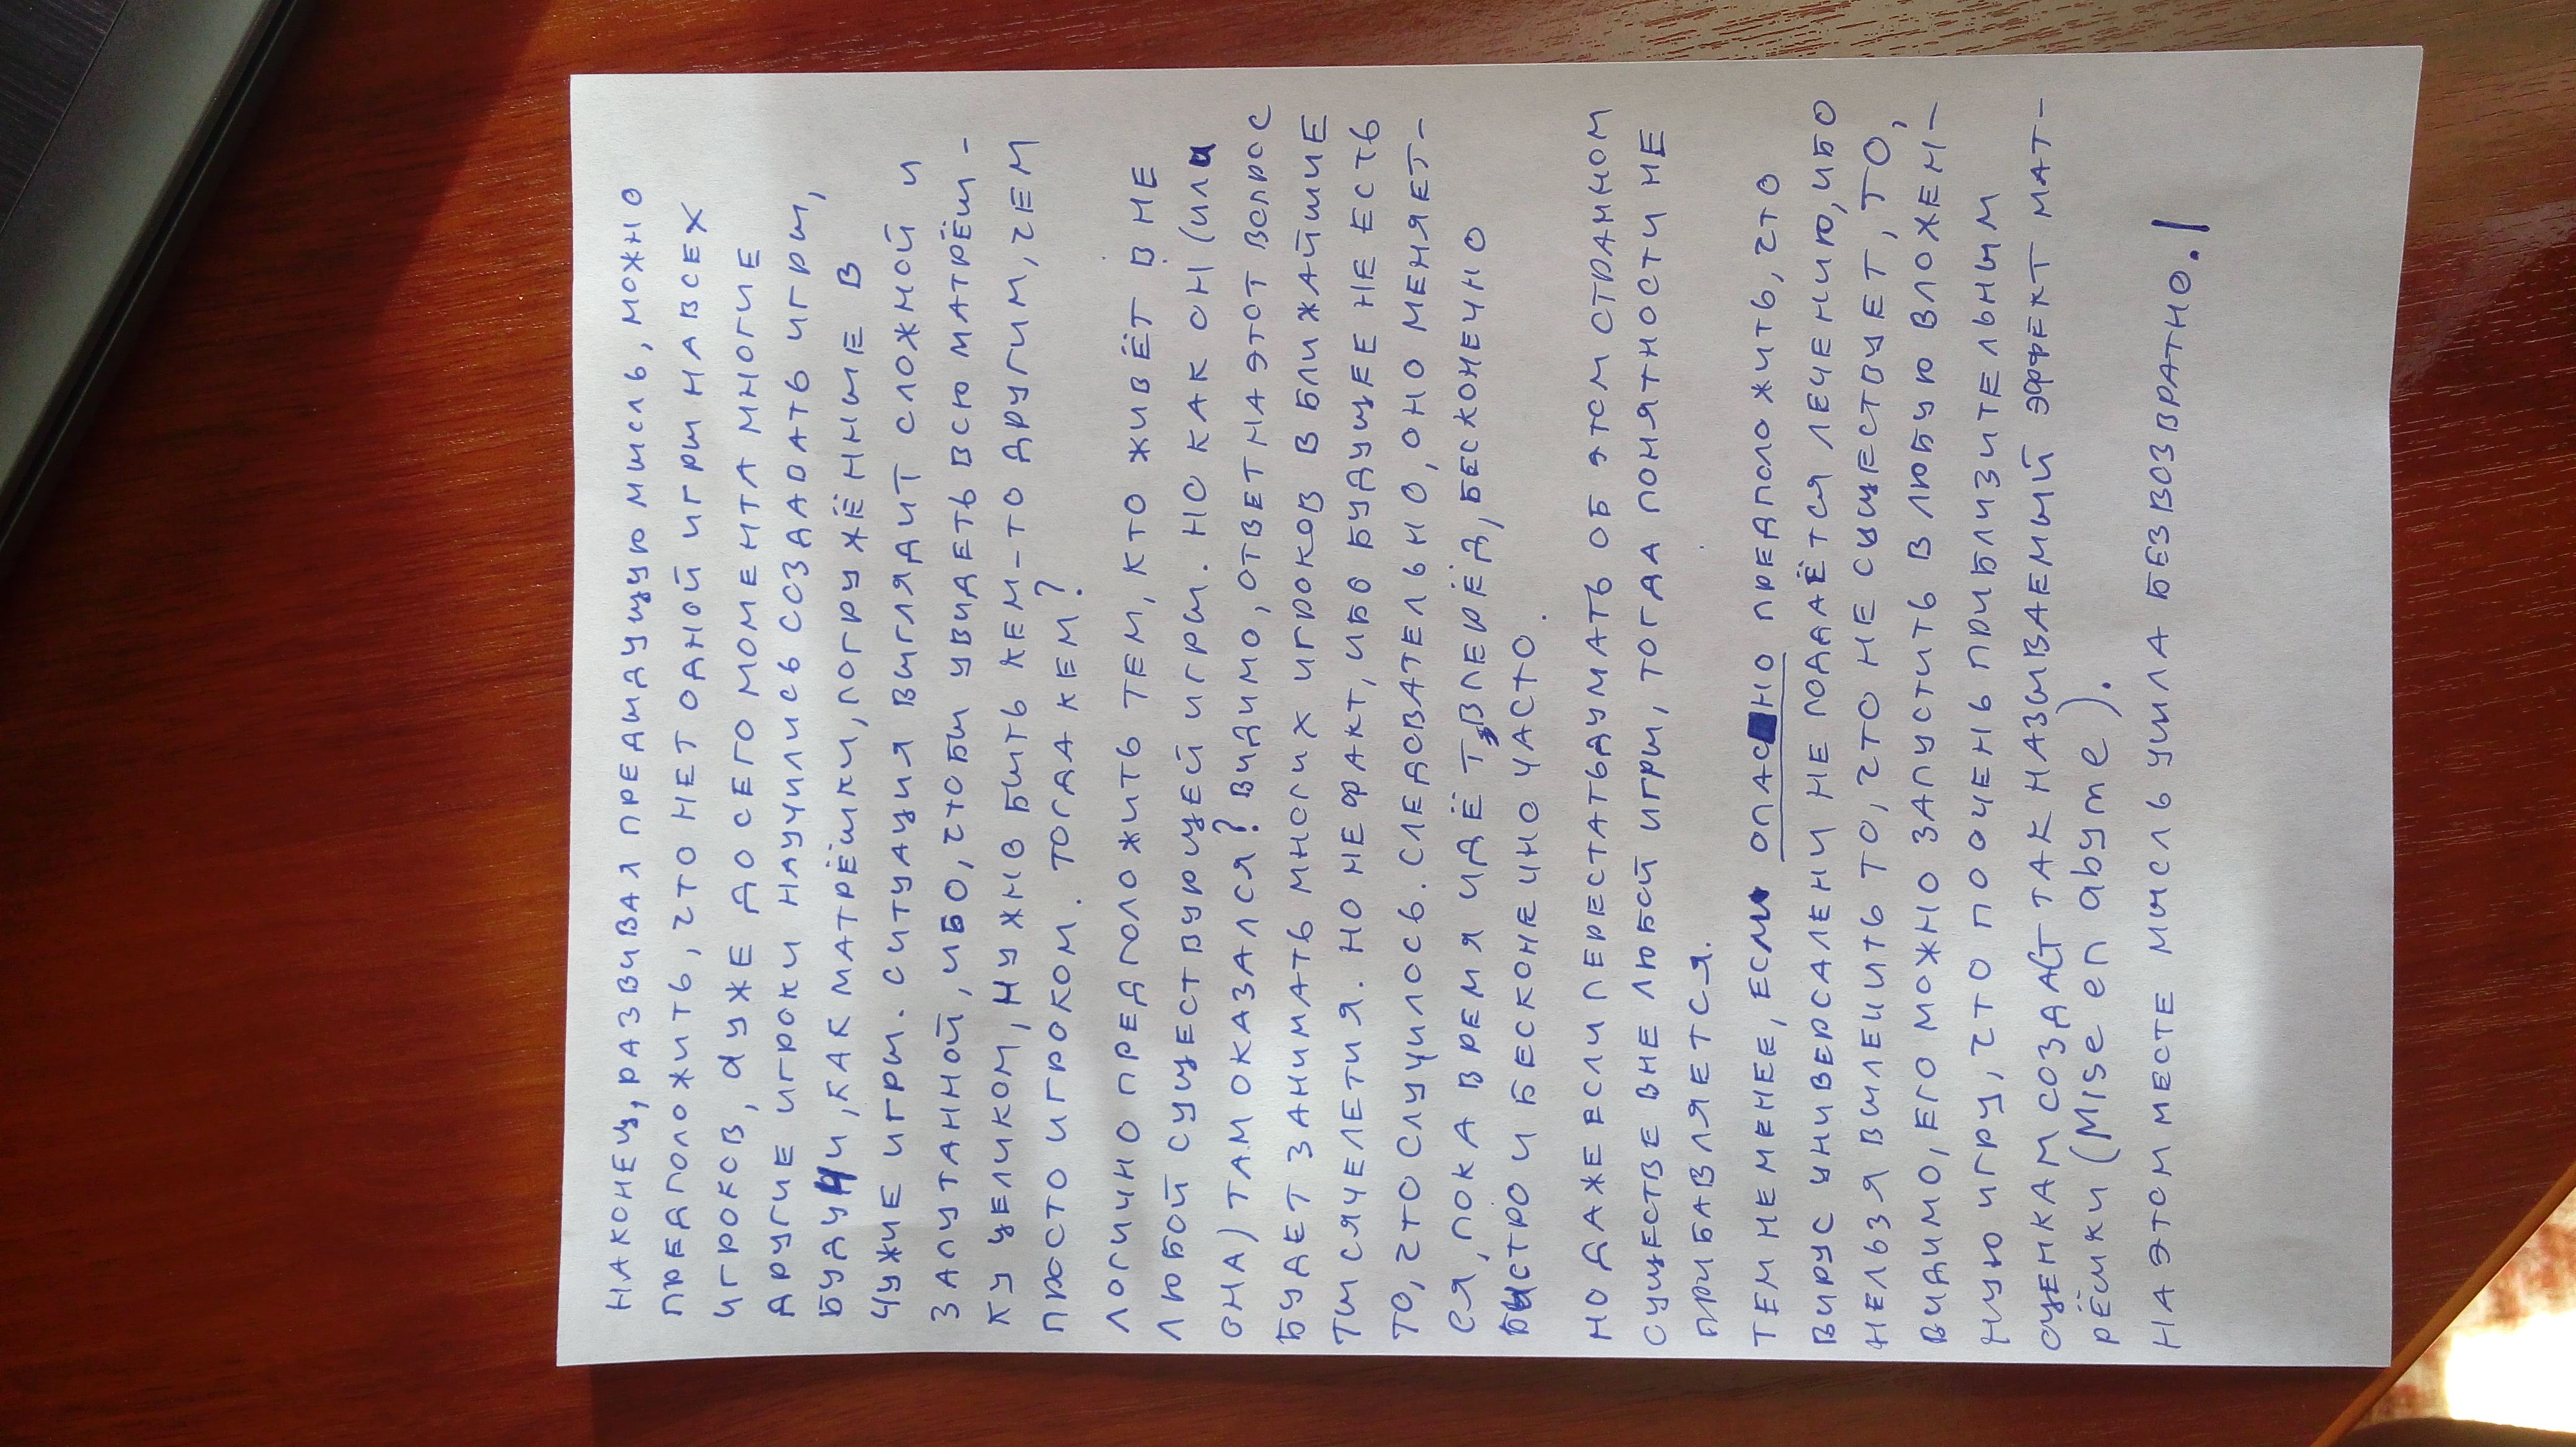 НАКОНЕЦ, РАЗВИВАЯ ПРЕДЫДУЩУЮ МЫСЛЬ, МОЖНО
ПРЕДПОЛОЖИТЬ, ЧТО НЕТ ОДНОЙ ИГРЫ НА ВСЕХ
ИГРОКОВ, А УЖЕ ДО СЕГО МОМЕНТА МНОГИЕ
ДРУГИЕ ИГРОКИ НАУЧИЛИСЬ СОЗДАВАТЬ ИГРЫ,
БУДУЧИ, КАК МАТРЁШКИ, ПОГРУЖЁННЫЕ В
ЧУЖИЕ ИГРЫ. СИТУАЦИЯ ВЫГЛЯДИТ СЛОЖНОЙ И
ЗАПУТАННОЙ, ИБО, ЧТОБЫ УВИДЕТЬ ВСЮ МАТРЁШ-
КУ ЦЕЛИКОМ, НУЖНО БЫТЬ КЕМ-ТО ДРУГИМ, ЧЕМ
ПРОСТО ИГРОКОМ. ТОГДА КЕМ?
ЛОГИЧНО ПРЕДПОЛОЖИТЬ ТЕМ, КТО ЖИВЁТ ВНЕ
ЛЮБОЙ СУЩЕСТВУЮЩЕЙ ИГРЫ. НО КАК ОН (ИЛИ
ОНА) ТАМ ОКАЗАЛСЯ? ВИДИМО, ОТВЕТ НА ЭТОТ ВОПРОС
БУДЕТ ЗАНИМАТЬ МНОГИХ ИГРОКОВ В БЛИЖАЙШИЕ
ТЫСЯЧЕЛЕТИЯ. НО НЕ ФАКТ, ИБО БУДУЩЕЕ НЕ ЕСТЬ
ТО, ЧТО СЛУЧИЛОСЬ. СЛЕДОВАТЕЛЬНО, ОНО МЕНЯЕТ-
СЯ, ПОКА ВРЕМЯ ИДЁТ ВПЕРЁД, БЕСКОНЕЧНО
БЫСТРО И БЕСКОНЕЧНО ЧАСТО.
НО ДАЖЕ ЕСЛИ ПЕРЕСТАТЬ ДУМАТЬ ОБ ЭТОМ СТРАННОМ
СУЩЕСТВЕ ВНЕ ЛЮБОЙ ИГРЫ, ТОГДА ПОНЯТНОСТИ НЕ
ПРИБАВЛЯЕТСЯ.
ТЕМ НЕ МЕНЕЕ, ЕСЛИ ОПАСНО ПРЕДПОЛОЖИТЬ, ЧТО
ВИРУС УНИВЕРСАЛЕН И НЕ ПОДДАЁТСЯ ЛЕЧЕНИЮ, ИБО
НЕЛЬЗЯ ВЫЛЕЧИТЬ ТО, ЧТО НЕ СУЩЕСТВУЕТ, ТО,
ВИДИМО, ЕГО МОЖНО ЗАПУСТИТЬ В ЛЮБУЮ ВЛОЖЕН-
НУЮ ИГРУ, ЧТО ПО ОЧЕНЬ ПРИБЛИЗИТЕЛЬНЫМ
ОЦЕНКАМ СОЗДАСТ ТАК НАЗЫВАЕМЫЙ ЭФФЕКТ МАТ-
РЁШКИ (Mise en abyme).
НА ЭТОМ МЕСТЕ МЫСЛЬ УШЛА БЕЗВОЗВРАТНО.!